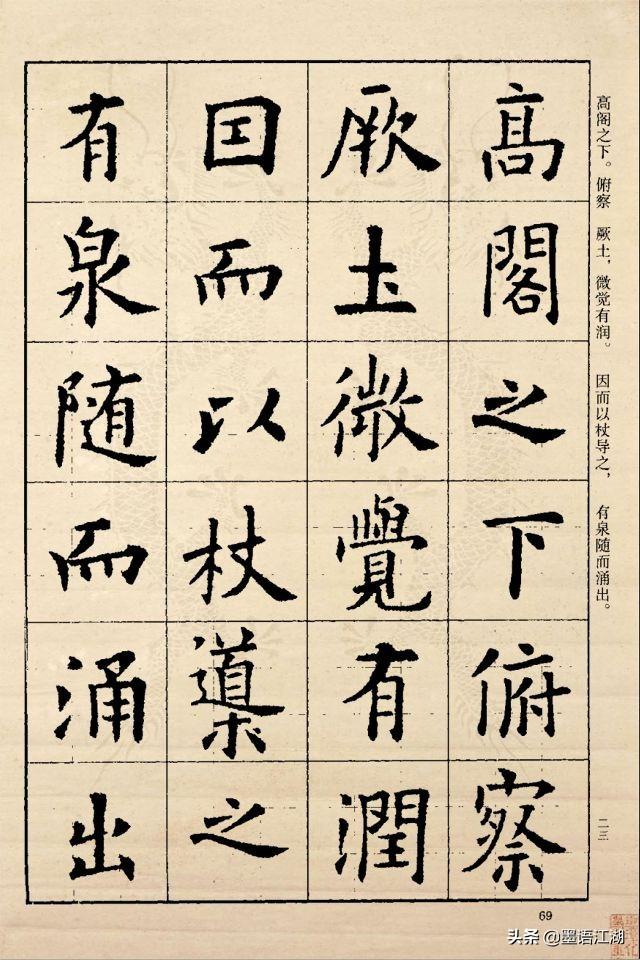 高阁之下。俯察 厥土，微觉有润。 因而以杖导之， 有泉随而涌出。
二三
髙閣之下俯察
厥圡微覺有潤
因而以杖導之
有泉随而涌出
69
头条 @墨语江湖